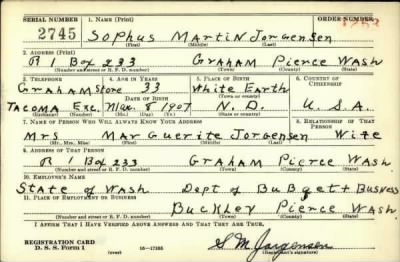 SERIAL NUMBER 1. NAME (Print) ORDER NUMBER
2745 SOPHUS MARTIN JORGENSEN
(First) (Middle) (Last)
2. ADDRESS (Print)
R 1 BOX 233 GRAHAM PIERCE WASH
(Number and street or R. F. D. number) (Town) (County) (State)
3. TELEPHONE 4. AGE IN YEARS 5. PLACE OF BIRTH 6. COUNTRY OF CITIZENSHIP
GRAHAM Store 33 White Earth
DATE OF BIRTH (Town or county)
TACOMA Exc. Mar. 8 1907 N. D. U.S.A.
(Exchange) (Number) (Mo.) (Day) (Yr.) (State or country)
7. NAME OF PERSON WHO WILL ALWAYS KNOW YOUR ADDRESS 8. RELATIONSHIP OF THAT PERSON
MRS MARGUERITE JORGENSEN WIFE
(Mr., Mrs., Miss) (First) (Middle) (Last)
9. ADDRESS OF THAT PERSON
R 1 BOX 233 GRAHAM PIERCE WASH
(Number and street or R. F. D. number) (Town) (County) (State)
10. EMPLOYER'S NAME
STATE of WASH. Dept of BuBget + Busness
11. PLACE OF EMPLOYMENT OR BUSINESS
BUCKLEY PIERCE WASH.
(Number and street or R. F. D. number) (Town) (County) (State)
I AFFIRM THAT I HAVE VERIFIED ABOVE ANSWERS AND THAT THEY ARE TRUE.
REGISTRATION CARD S M Jorgensen
D. S. S. Form 1 (over) 16-17105 (Registrant's signature)